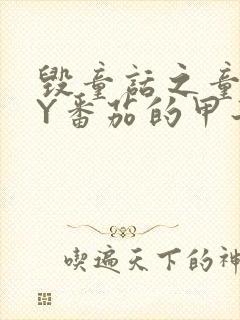 毁童话之童
Y番茄的甲
喫遍天下的神